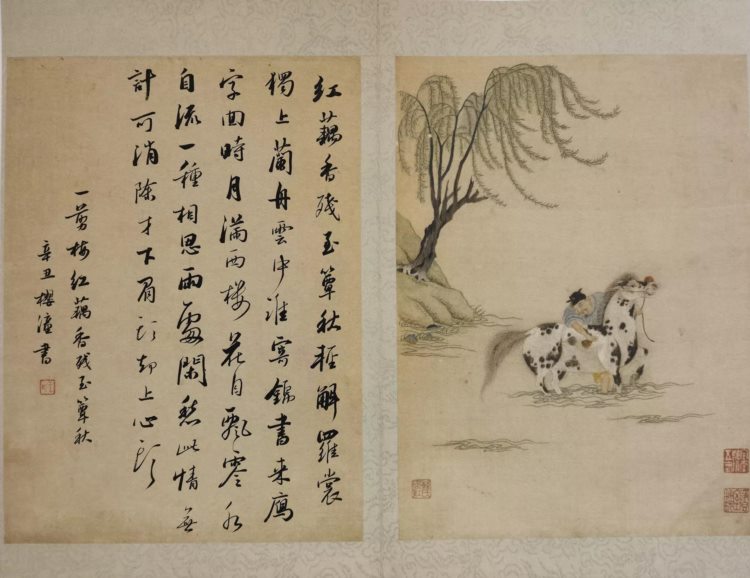 紅藕香殘玉簟秋輕解羅裳
獨上蘭舟雲中誰寄錦書來鴈
字回時月滿西樓花自飄零水
自流一種相思兩處閑愁此情無
計可消除才下眉頭却上心頭
一剪梅紅藕香殘玉簟秋
辛丑櫻潼書